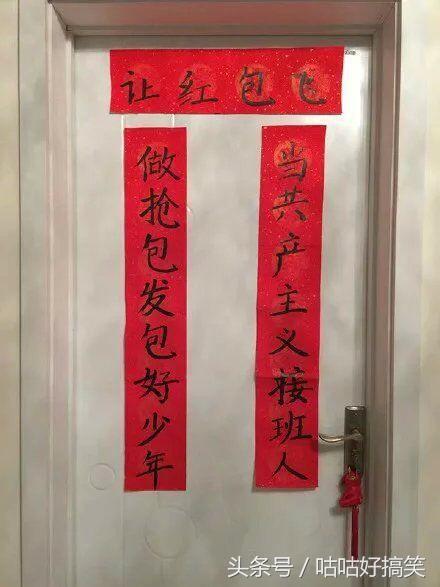 让红包飞
做抢包发包好少年
当共产主义接班人
头条号／咕咕好搞笑